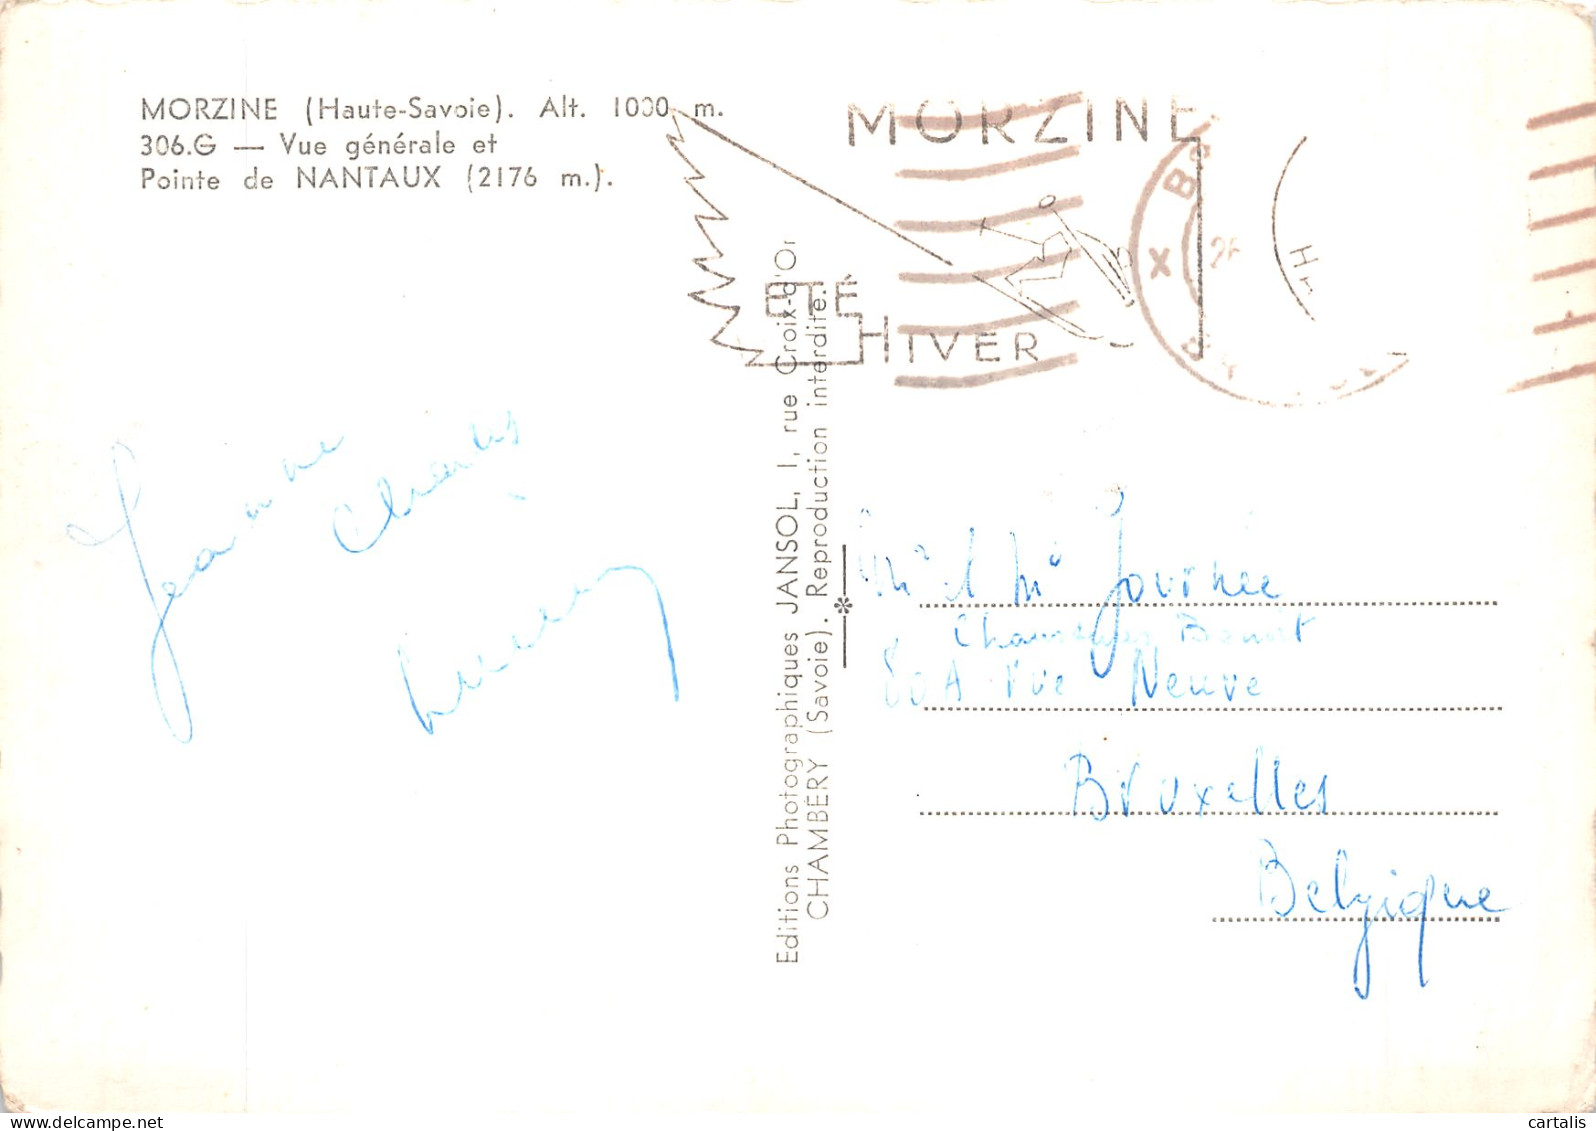 MORZINE (Haute-Savoie). Alt. 1000 m.
306.G — Vue générale et
Pointe de NANTAUX (2176 m.).
MORZINE
ÉTÉ
HIVER
X
B
26
H
Editions Photographiques JANSOL, 1, rue Croix-d'Or
CHAMBÉRY (Savoie). Reproduction interdite.
Jeanne
Charles
Mr & Me Journée
Benoit
80A rue Neuve
Bruxelles
Belgique
delcampe.net
cartalis